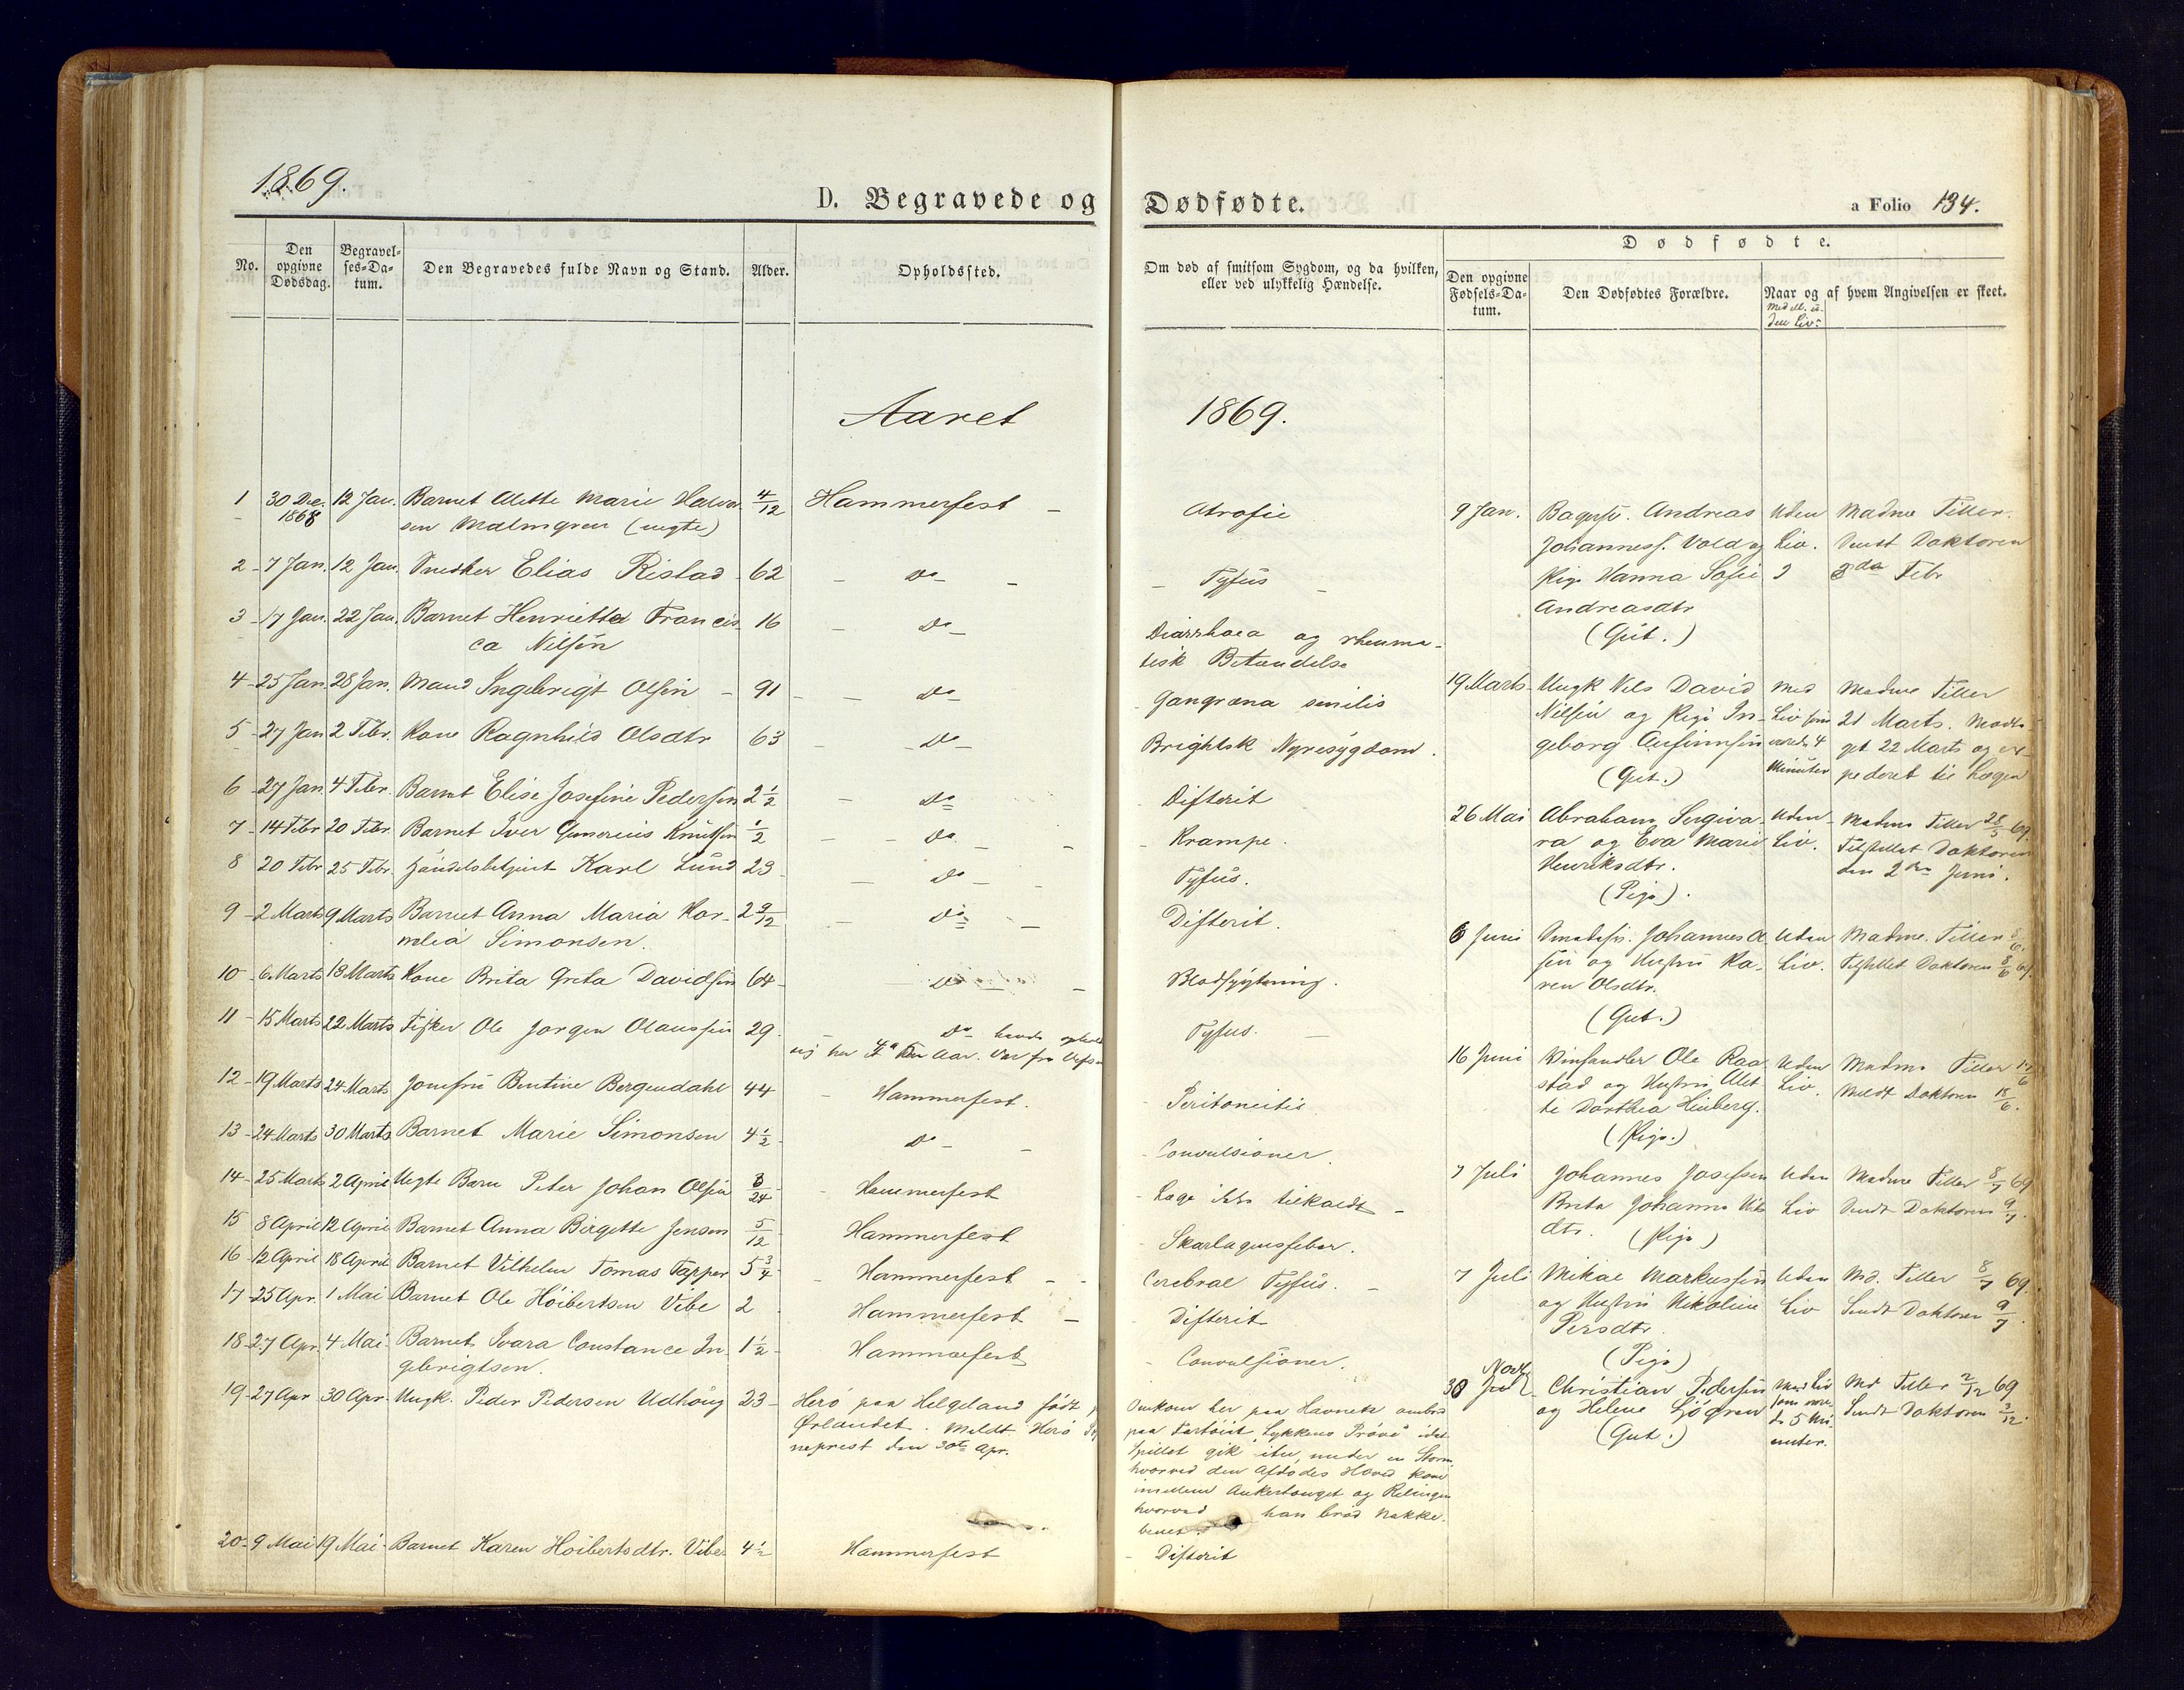 1869.
D. Begravede og
No.
Den opgivne Dødsdag.
Begravelses-Datum.
Den Begravedes fulde Navn og Stand.
Alder.
Opholdssted.
Aaret
1 30 Dec. 1868 12 Jan. Barnet Alette Marie Halvor- 4/12 Hammerfest -
sen Malmgren (uegte)
2 - 7 Jan. 12 Jan. Snedker Elias Ristad - 62 - Do -
3 - 17 Jan. 22 Jan. Barnet Henrietta Francis- 16 - Do -
ca Nilsen
4 - 25 Jan. 28 Jan. Mand Ingebrigt Olsen - 91 - Do -
5 - 27 Jan 2 Febr. Kone Ragnhild Olsdtr 63 - Do -
6 - 27 Jan 4 Febr. Barnet Elise Josefine Pedersen 2 1/2 - Do
7 - 14 Febr 20 Febr. Barnet Iver Gunerius Knutsen 1/2 - Do -
8 20 Febr 25 Febr. Handelsbetjent Karl Lund 23 - Do -
9 - 2 Marts 9 Marts Barnet Anna Maria Kor- 2 9/12 - Do -
nelia Simonsen.
10 - 6 Marts 13 Marts Kone Brita Greta Davidsen 64 - Do -
11 - 15 Marts 22 Marts Fisker Ole Jørgen Olaussen 29. Do - havde
sig her Aar. Var fra
12 - 19 Marts 24 Marts Jomfru Bentine Bergendahl 44 - Hammerfest.
13 - 24 Marts 30 Marts Barnet Marie Simonsen 4 1/2 - Do -
14 - 25 Marts 2 April Uegte Barn Peter Johan Olsen 3/24 - Hammerfest
15 8 April 12 April Barnet Anna Birgette Jensen 5/12 Hammerfest
16 - 12 April 18 April Barnet Vilhelm Tomas Tapper 5 3/4 - Hammerfest -
17 - 25 Apr. 1 Mai Barnet Ole Höibertsen Vibe 2 Hammerfest -
18 - 27 Apr. 4 Mai. Barnet Ivara Constance In- 1 1/2 - Hammerfest
gebrigtsen.
19 - 27 Apr 30 Apr. Ungk. Peder Pedersen Udhoug 23 - Herö paa Helgeland född
Ørlandet. Meldt Herö
neprest den 30te Apr.
20 - 9 Mai 19 Mai - Barnet Karen Höibertsdtr. Vibe 4 1/2 Hammerfest
Dødfødte.
a Folio 134.
Om død af smitsom Sygdom, og da hvilken, eller ved ulykkelig Hændelse.
Dødfødte.
Den opgivne Fødsels-Datum.
Den Dødfødtes Forældre.
Naar og af hvem Angivelsen er skeet.
Med ell. u-
den Liv:
1869.
Atrofie
- Tyfus -
Diarrhoea og rheuma-
tisk Betændelse
Gangræna senilis
Brightsk Nyresygdom.
Difterit
Krampe.
Tyfus.
Difterit.
Blodspytning.
Tyfus. -
Peritoneitis
Convulsioner.
Læge ikke tilkaldt -
Skarlagensfeber.
Cerebral Tyfus. -
Difterit
Convulsioner.
Omkom her paa Havnen ombord
paa Fartöiet "Lykkens Pröve" idet
Spillet gik itu, under en Storm
hvorved den Afdödes Hoved kom
imellem Ankertouget og Relingen
hvorved han bröd Nakke-
benet.
- Difterit
9 Jan. Andreas Uden Madme Tiller.
Johanness. Vold og Liv. Sendt Doktoren
Pige Hanna Sofie Febr
Andreasdtr
(Gut.)
19 Marts Ungk Nils David Med Madme Tiller
Nilsen og Pige In- Liv som 21 Marts. Modta-
geborg varede 4 get 22 Marts og ex-
(Gut.) Minuter pederet til Lægen
26 Mai Abraham Uden Madme Tiller 28/5 69.
ra og Eva Marie Liv. Tilstillet Doktoren
Henriksdtr. den 2den Juni.
(Pige).
6 Juni Johannes Ol- Uden Madme. Tiller 8/6.
sen og Hustru Ka- Liv. Tilstillet Doktoren 8/6 69.
ren Olsdtr.
(Gut.)
16 Juni Vinhandler Ole Raa- Uden Madme Tiller 17/6
stad og Hustru Alet- Liv. Meldt Doktoren 18/6.
te Dorthea Heiberg.
(Pige.)
7 Juli Johannes Josefsen Uden Madme Tiller 8/7 69
Brita Johanna Liv Sendt Doktoren 9/7.
dtr. (Pige)
7 Juli Mikal Markussen Uden Md. Tiller 8/7 69.
og Hustru Nikoline Liv Sendt Doktoren 9/7.
Persdtr.
(Pige)
30 Novb Christian Pedersen Med Liv Md Tiller 2/12 69
og Helene Sjögren som vare- Sendt Doktoren 3/12.
(Gut.) de 5 Mi-
nuter.